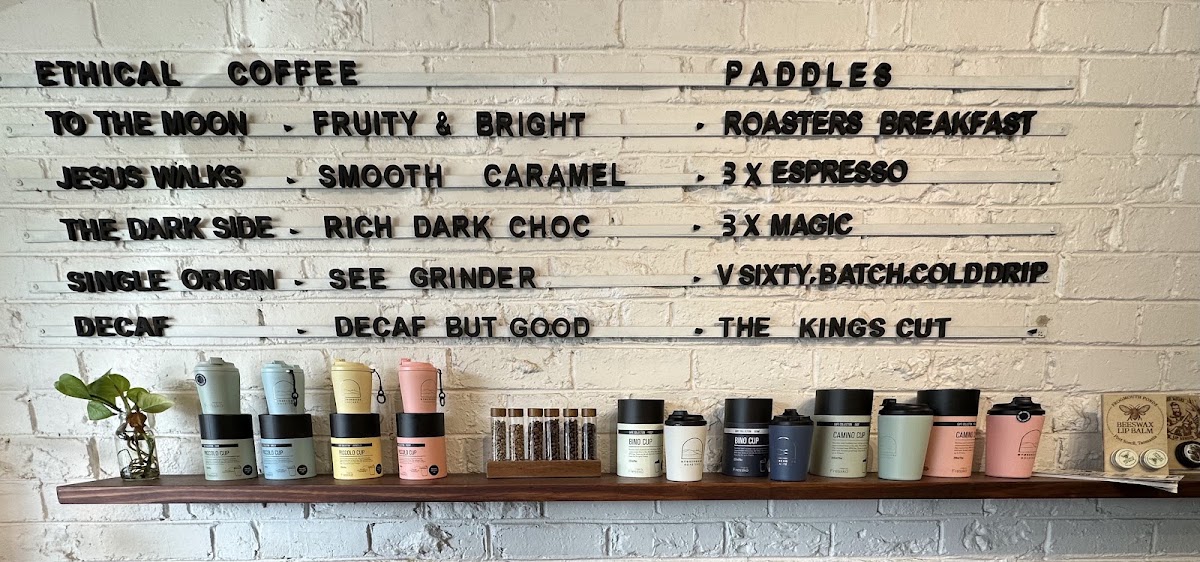 ETHICAL COFFEE PADDLES
TO THE MOON - FRUITY & BRIGHT - ROASTERS BREAKFAST
JESUS WALKS - SMOOTH CARAMEL - 3 X ESPRESSO
THE DARK SIDE - RICH DARK CHOC - 3 X MAGIC
SINGLE ORIGIN - SEE GRINDER - V SIXTY, BATCH, COLD DRIP
DECAF - DECAF BUT GOOD - THE KINGS CUT
PICCOLO CUP
PICCOLO CUP
PICCOLO CUP
PICCOLO CUP
BINO CUP
BINO CUP
CAMINO CUP
CAMINO
BEESWAX
LIP BALM